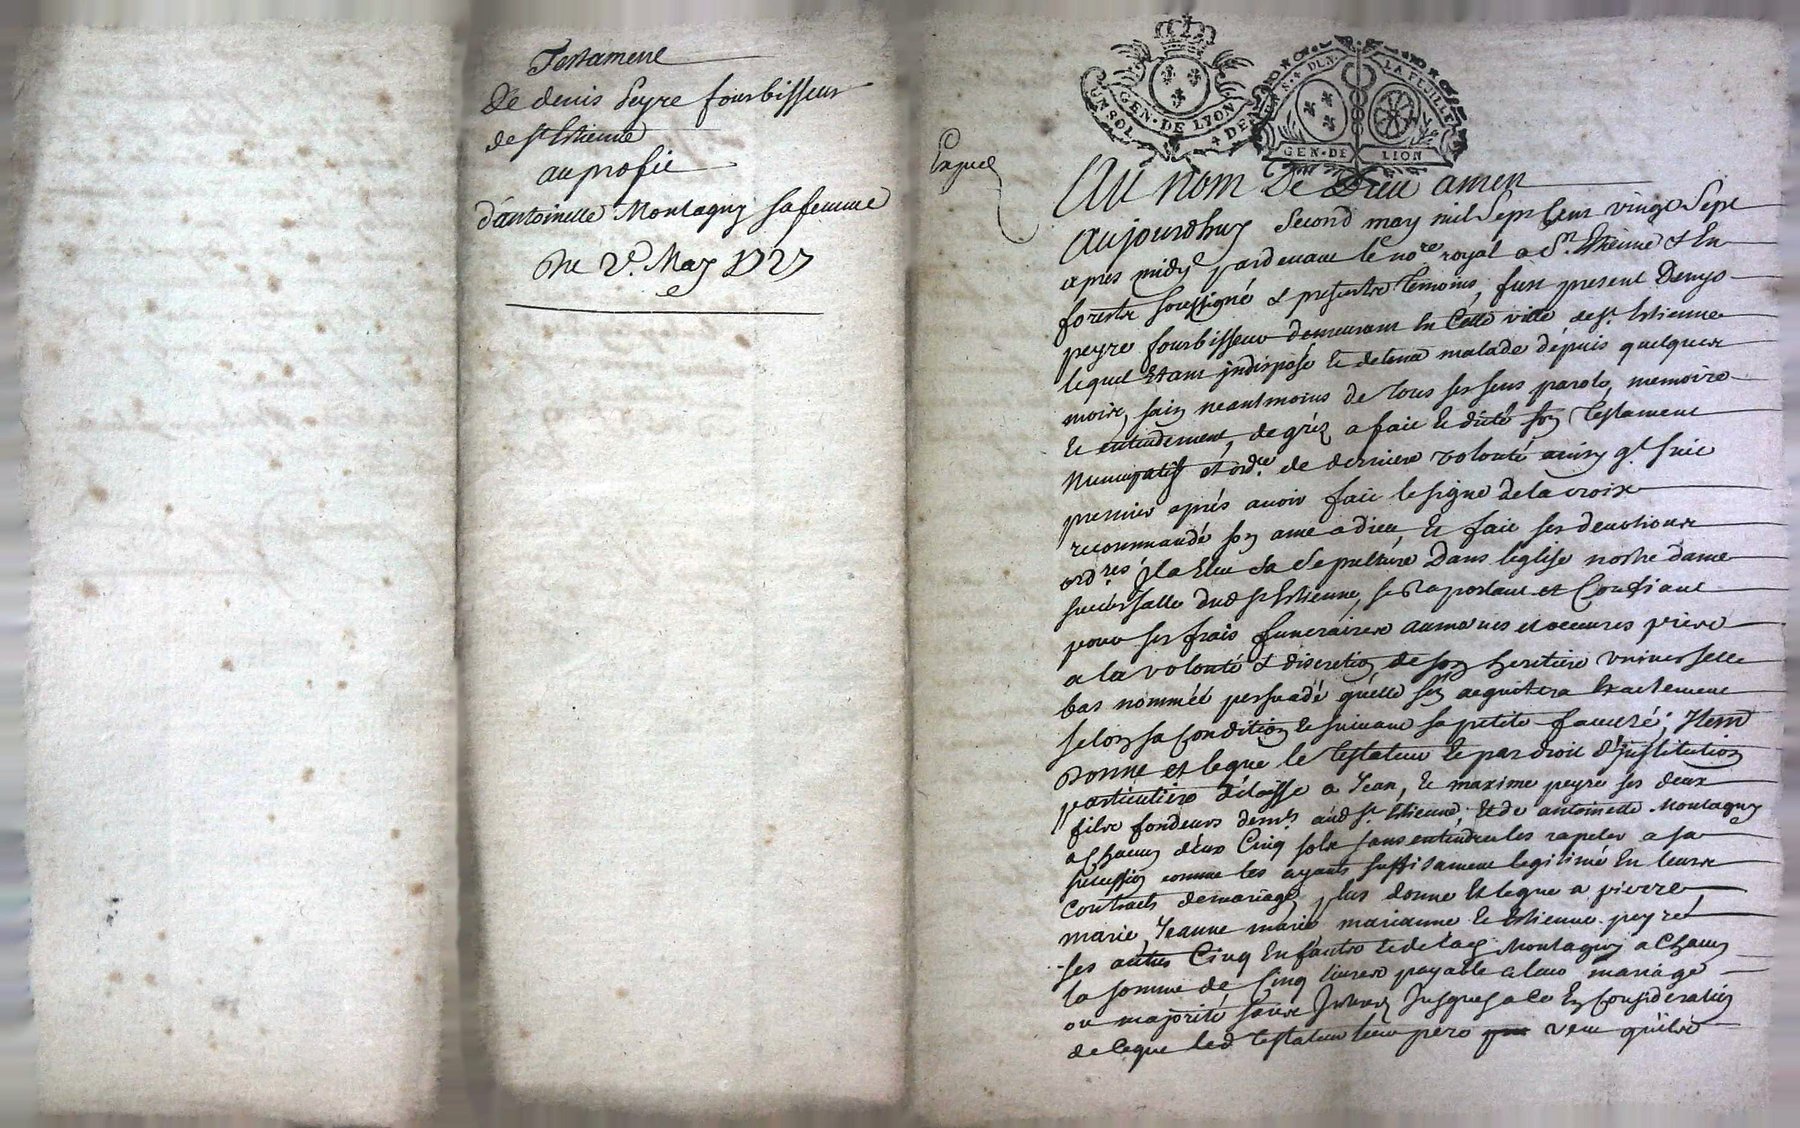 Testament
de denis peyre fourbisseur
de st Estienne
au profit
d'antoinette Montagny sa femme
Du 2e. May 1727
UN SOL
GEN·DE LYON
GEN·DE LION
LA FEUILLE
Expied
Au nom De Dieu amen
Aujourdhuy Second may mil Sept Cent vingt Sept
apres midy pardevant le nore royal a St. Estienne & En
forestz soussigné & presentz temoins, fust present Denys
peyre fourbisseur demeurant En Cette ville de st. Estienne
lequel Etant indisposé et detenu malade dépuis quelques
mois, sain neantmoins de tous ses sens parole, memoire
et entendement, de gréz a fait et dicté son testament
Nuncupatif et ordre. de derniere volonté ainsy qt. suit
premier aprés avoir fait le signe de la croix
recommandé son ame a dieu, Et fait ses devotions
ordres. Il a Eleu sa Sepulture Dans l'eglise nostre dame
succursalle dud st Estienne, se Raportant et Confiant
pour ses frais funeraires aumones et oeuvres pieses
a la volonté & discretion de son heritiere universelle
bas nommée persuadé quelle s'en aquitera Exactement
selon sa Condition et suivant sa petite faculté; Item
Donne et legue le testateur et par droit d'institution
particuliere délaisse a Jean, et maxime peyre ses deux
filz fondeurs demts. aud st. Estienne, Et de antoinette Montagny
a chacun deux Cinq solz sans entendre les rapeler a sa
succession comme les ayants suffisament legitimé En leurs
Contracts de mariage, plus donne Et legue a pierre
marie, Jeanne marie marianne et Estienne peyre
ses autres Cinq Enfants et de lad. Montagny a Chacun
la somme de Cinq livres payable a leur mariage
ou majorité sans Interest Jusques a ce En Consideration
de ce que led testateur leur pere veut qu'ils